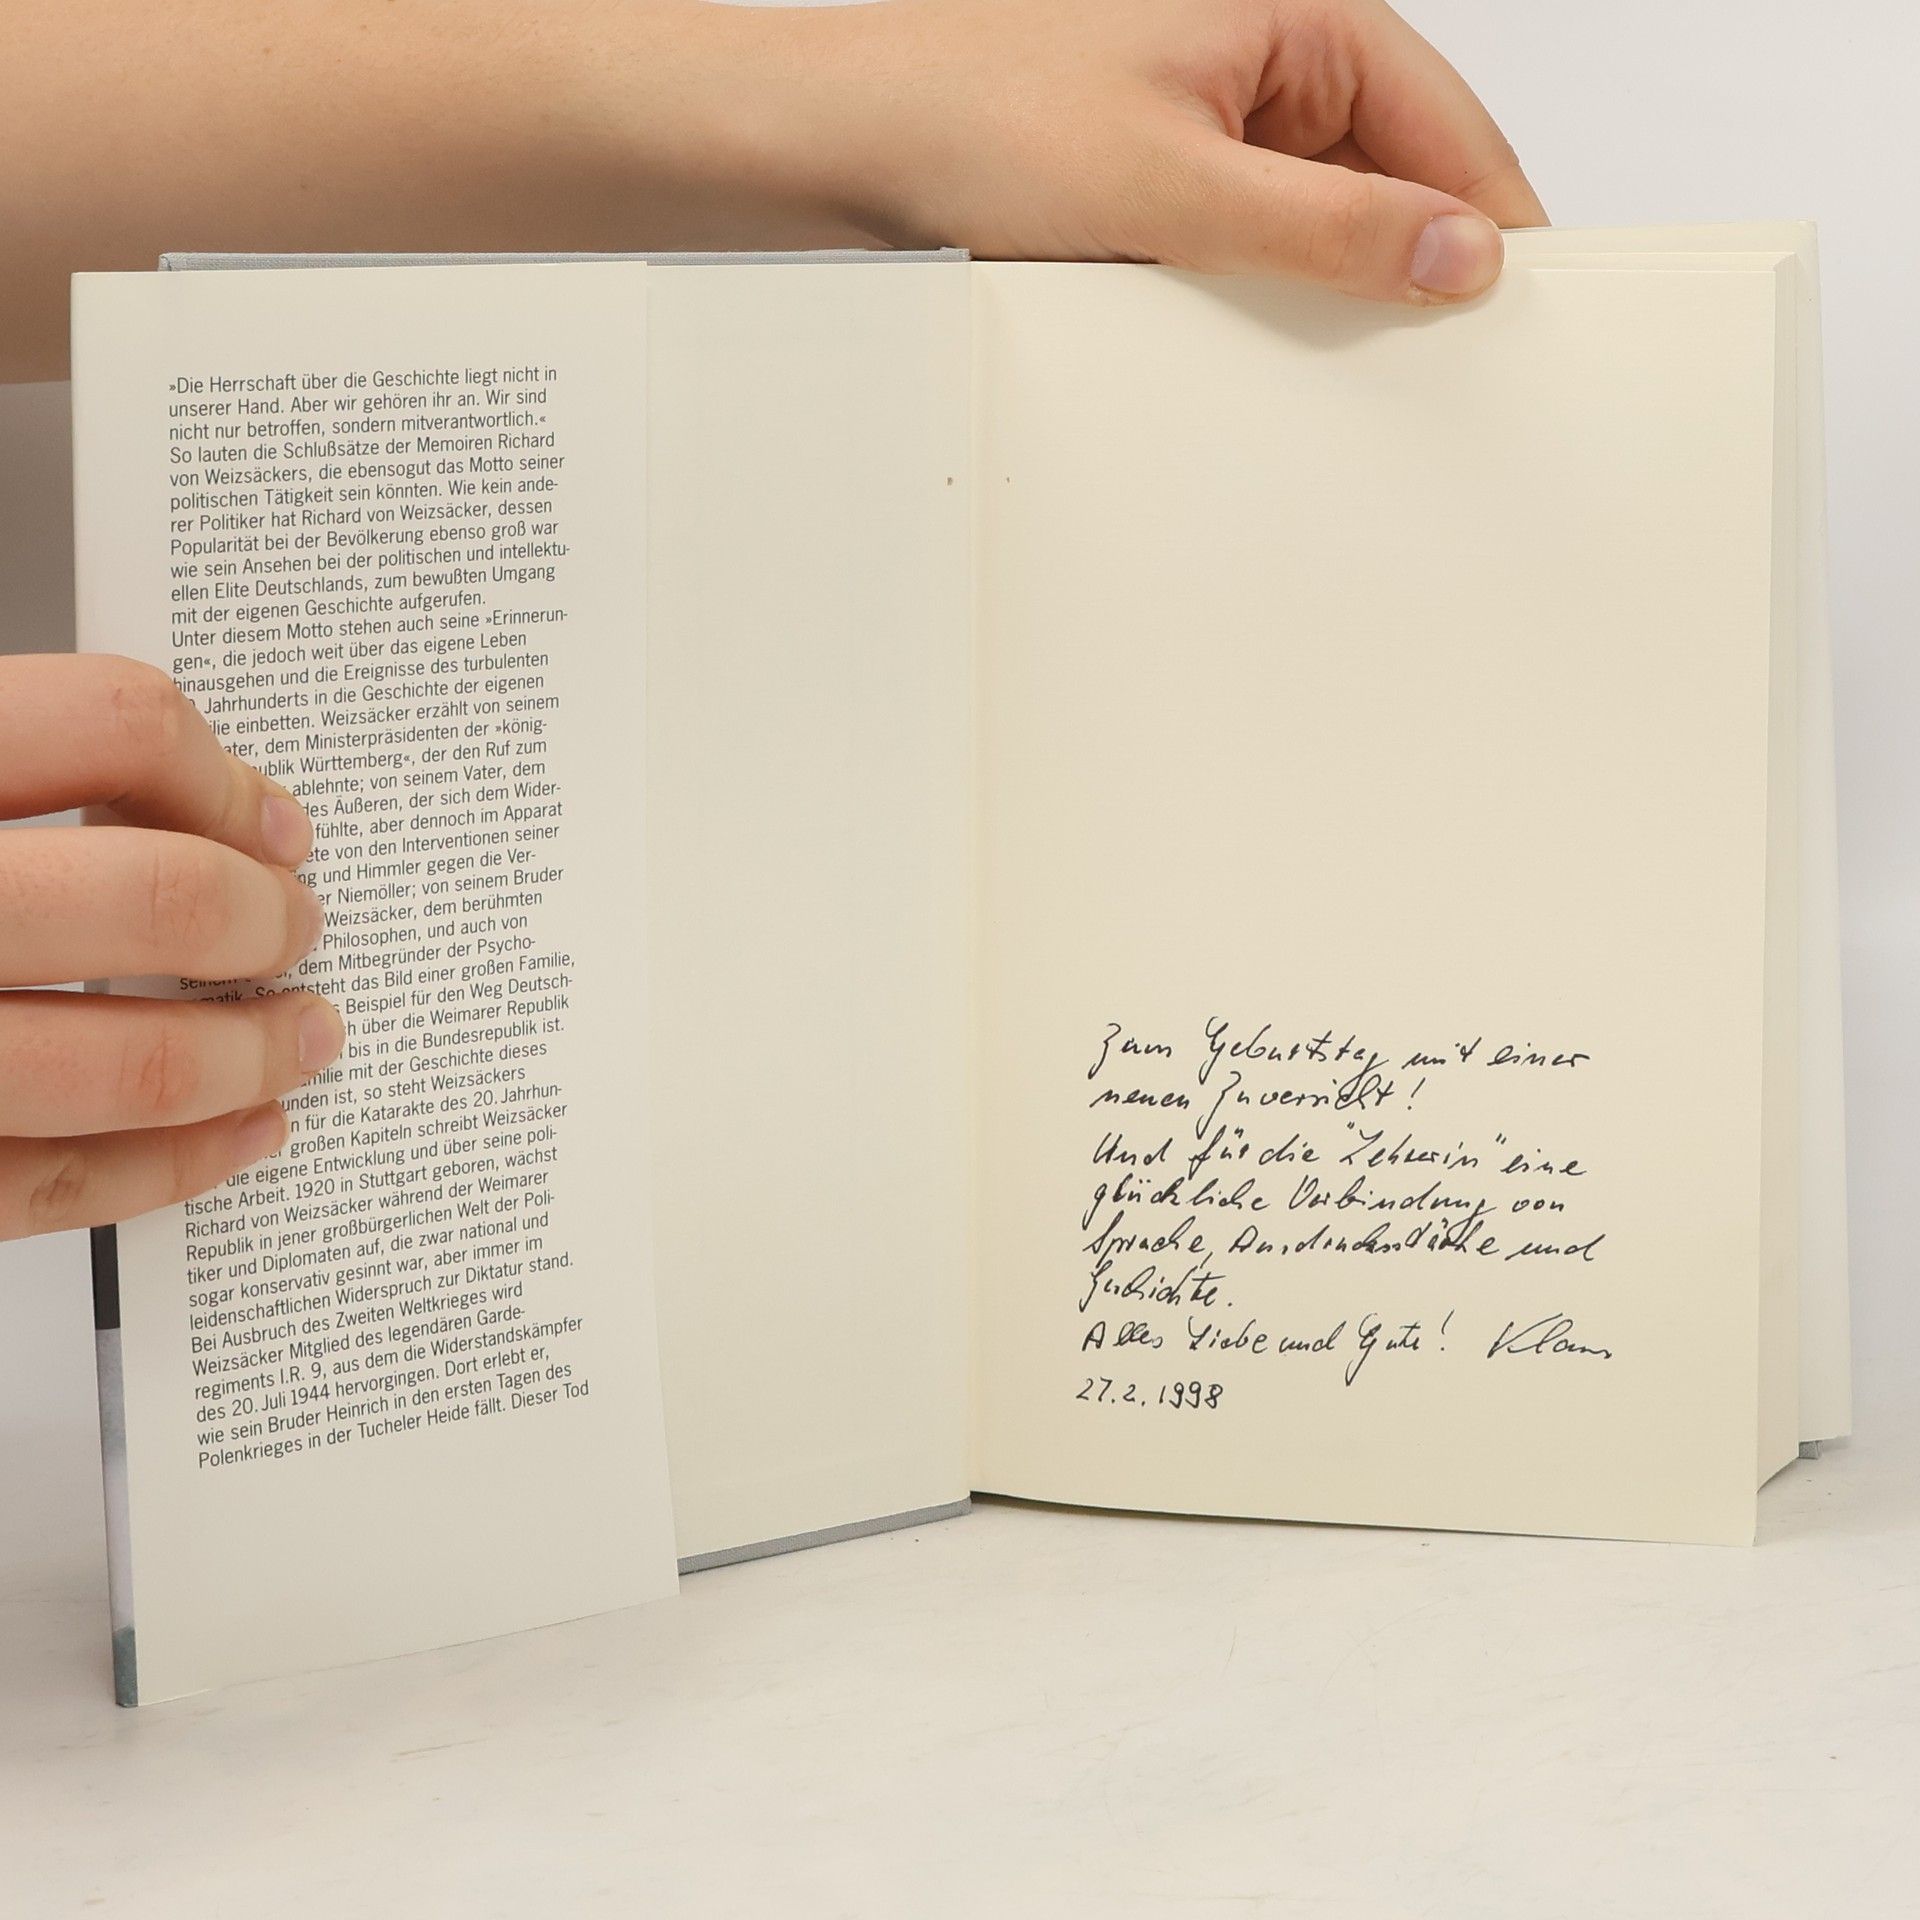 »Die Herrschaft über die Geschichte liegt nicht in
unserer Hand. Aber wir gehören ihr an. Wir sind
nicht nur betroffen, sondern mitverantwortlich.«
So lauten die Schlußsätze der Memoiren Richard
von Weizsäckers, die ebensogut das Motto seiner
politischen Tätigkeit sein könnten. Wie kein ande-
rer Politiker hat Richard von Weizsäcker, dessen
Popularität bei der Bevölkerung ebenso groß war
wie sein Ansehen bei der politischen und intellektu-
ellen Elite Deutschlands, zum bewußten Umgang
mit der eigenen Geschichte aufgerufen.
Unter diesem Motto stehen auch seine »Erinnerun-
gen«, die jedoch weit über das eigene Leben
hinausgehen und die Ereignisse des turbulenten
Jahrhunderts in die Geschichte der eigenen
einbetten. Weizsäcker erzählt von seinem
dem Ministerpräsidenten der »könig-
Württemberg«, der den Ruf zum
ablehnte; von seinem Vater, dem
des Äußeren, der sich dem Wider-
fühlte, aber dennoch im Apparat
von den Interventionen seiner
und Himmler gegen die Ver-
Niemöller; von seinem Bruder
Weizsäcker, dem berühmten
Philosophen, und auch von
dem Mitbegründer der Psycho-
So entsteht das Bild einer großen Familie,
Beispiel für den Weg Deutsch-
über die Weimarer Republik
bis in die Bundesrepublik ist.
mit der Geschichte dieses
ist, so steht Weizsäckers
für die Katarakte des 20. Jahrhun-
großen Kapiteln schreibt Weizsäcker
die eigene Entwicklung und über seine poli-
tische Arbeit. 1920 in Stuttgart geboren, wächst
Richard von Weizsäcker während der Weimarer
Republik in jener großbürgerlichen Welt der Poli-
tiker und Diplomaten auf, die zwar national und
sogar konservativ gesinnt war, aber immer im
leidenschaftlichen Widerspruch zur Diktatur stand.
Bei Ausbruch des Zweiten Weltkrieges wird
Weizsäcker Mitglied des legendären Garde-
regiments I.R. 9, aus dem die Widerstandskämpfer
des 20. Juli 1944 hervorgingen. Dort erlebt er,
wie sein Bruder Heinrich in den ersten Tagen des
Polenkrieges in der Tucheler Heide fällt. Dieser Tod
Zum Geburtstag mit einer
neuen Zuversicht!
Und für die "Lehrerin" eine
glückliche Verbindung von
Sprache, Ausdrucksstärke und
Geschichte.
Alles Liebe und Gute! Klaus
27.2.1998